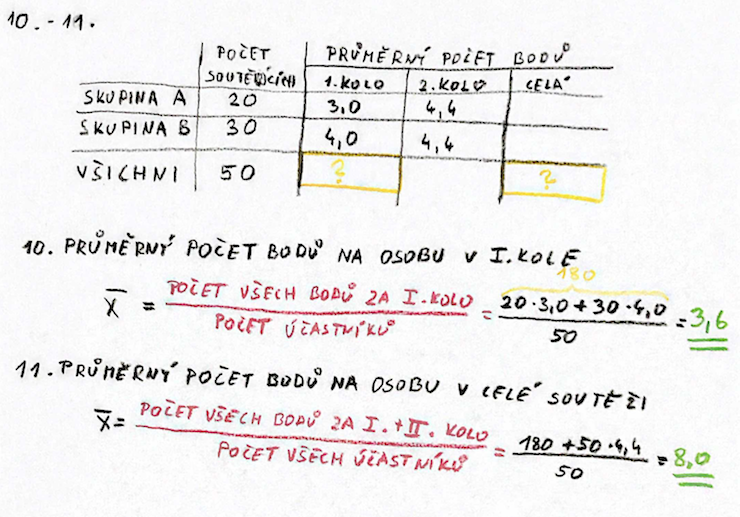 10.-11.
POČET PRŮMĚRNÝ POČET BODŮ
SOUTĚŽÍCÍCH 1. KOLO 2. KOLO CELÁ
SKUPINA A 20 3,0 4,4
SKUPINA B 30 4,0 4,4
VŠICHNI 50 ? ?
10. PRŮMĚRNÝ POČET BODŮ NA OSOBU V I. KOLE
180
X̄ = POČET VŠECH BODŮ ZA I. KOLO / POČET ÚČASTNÍKŮ = 20·3,0+30·4,0 / 50 = 3,6
11. PRŮMĚRNÝ POČET BODŮ NA OSOBU V CELÉ SOUTĚŽI
X̄ = POČET VŠECH BODŮ ZA I.+II. KOLO / POČET VŠECH ÚČASTNÍKŮ = 180+50·4,4 / 50 = 8,0